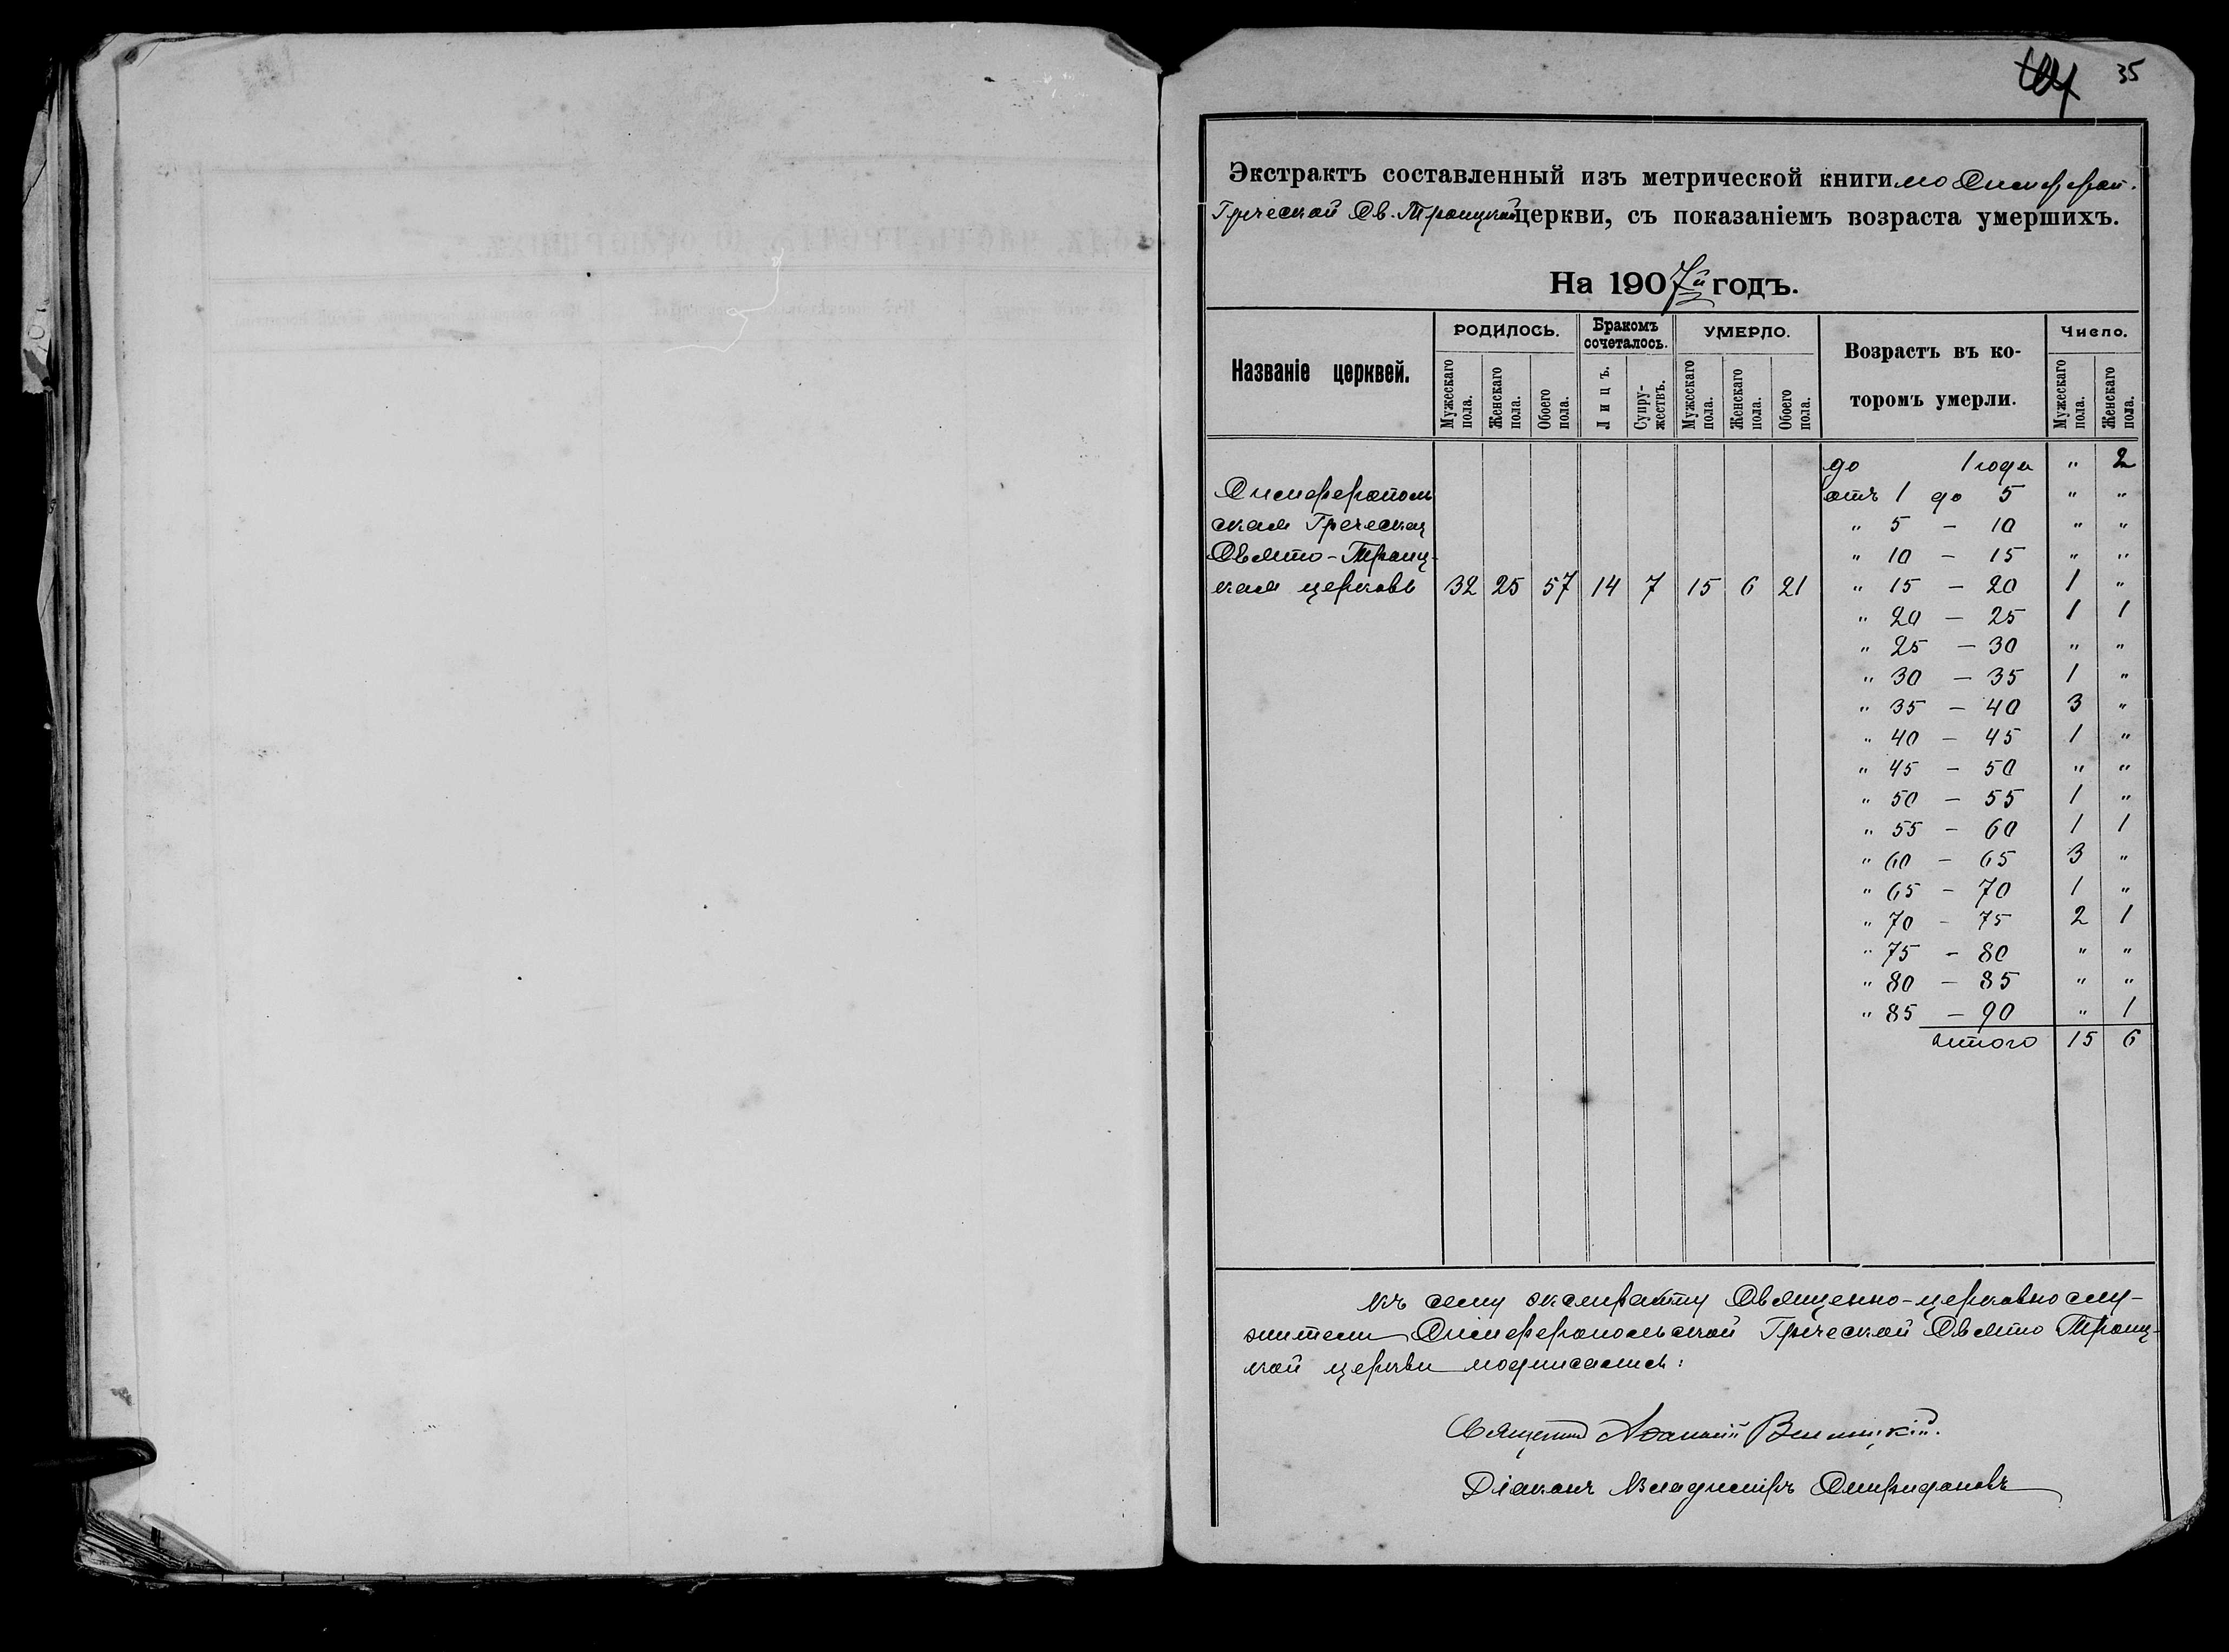 35
Экстрактъ составленный изъ метрической книги по Симфероп.
Греческой Св. Троицкой церкви, съ показаніемъ возраста умершихъ.
На 1907й годъ.
Названіе церквей.
РОДИЛОСЬ.
Мужескаго пола.
Женскаго пола.
Обоего пола.
Бракомъ сочеталось.
Лицъ.
Супружествъ.
УМЕРЛО.
Мужескаго пола.
Женскаго пола.
Обоего пола.
Возрастъ въ которомъ умерли.
Число.
Мужескаго пола.
Женскаго пола.
до 1 года " 2
Симферополь
отъ 1 до 5 " "
ская Греческая
" 5 – 10 " "
Свято-Троиц-
" 10 – 15 " "
кая церковь 32 25 57 14 7 15 6 21
" 15 – 20 1 "
" 20 – 25 1 1
" 25 – 30 " "
" 30 – 35 1 "
" 35 – 40 3 "
" 40 – 45 1 "
" 45 – 50 " "
" 50 – 55 1 "
" 55 – 60 1 1
" 60 – 65 3 "
" 65 – 70 1 "
" 70 – 75 2 1
" 75 – 80 " "
" 80 – 85 " "
" 85 – 90 " 1
итого 15 6
Къ сему экстракту Священно-церковнослу-
жители Симферопольской Греческой Свято Троиц-
кой церкви подписались:
Священник
Діаконъ Владиміръ Спиридоновъ